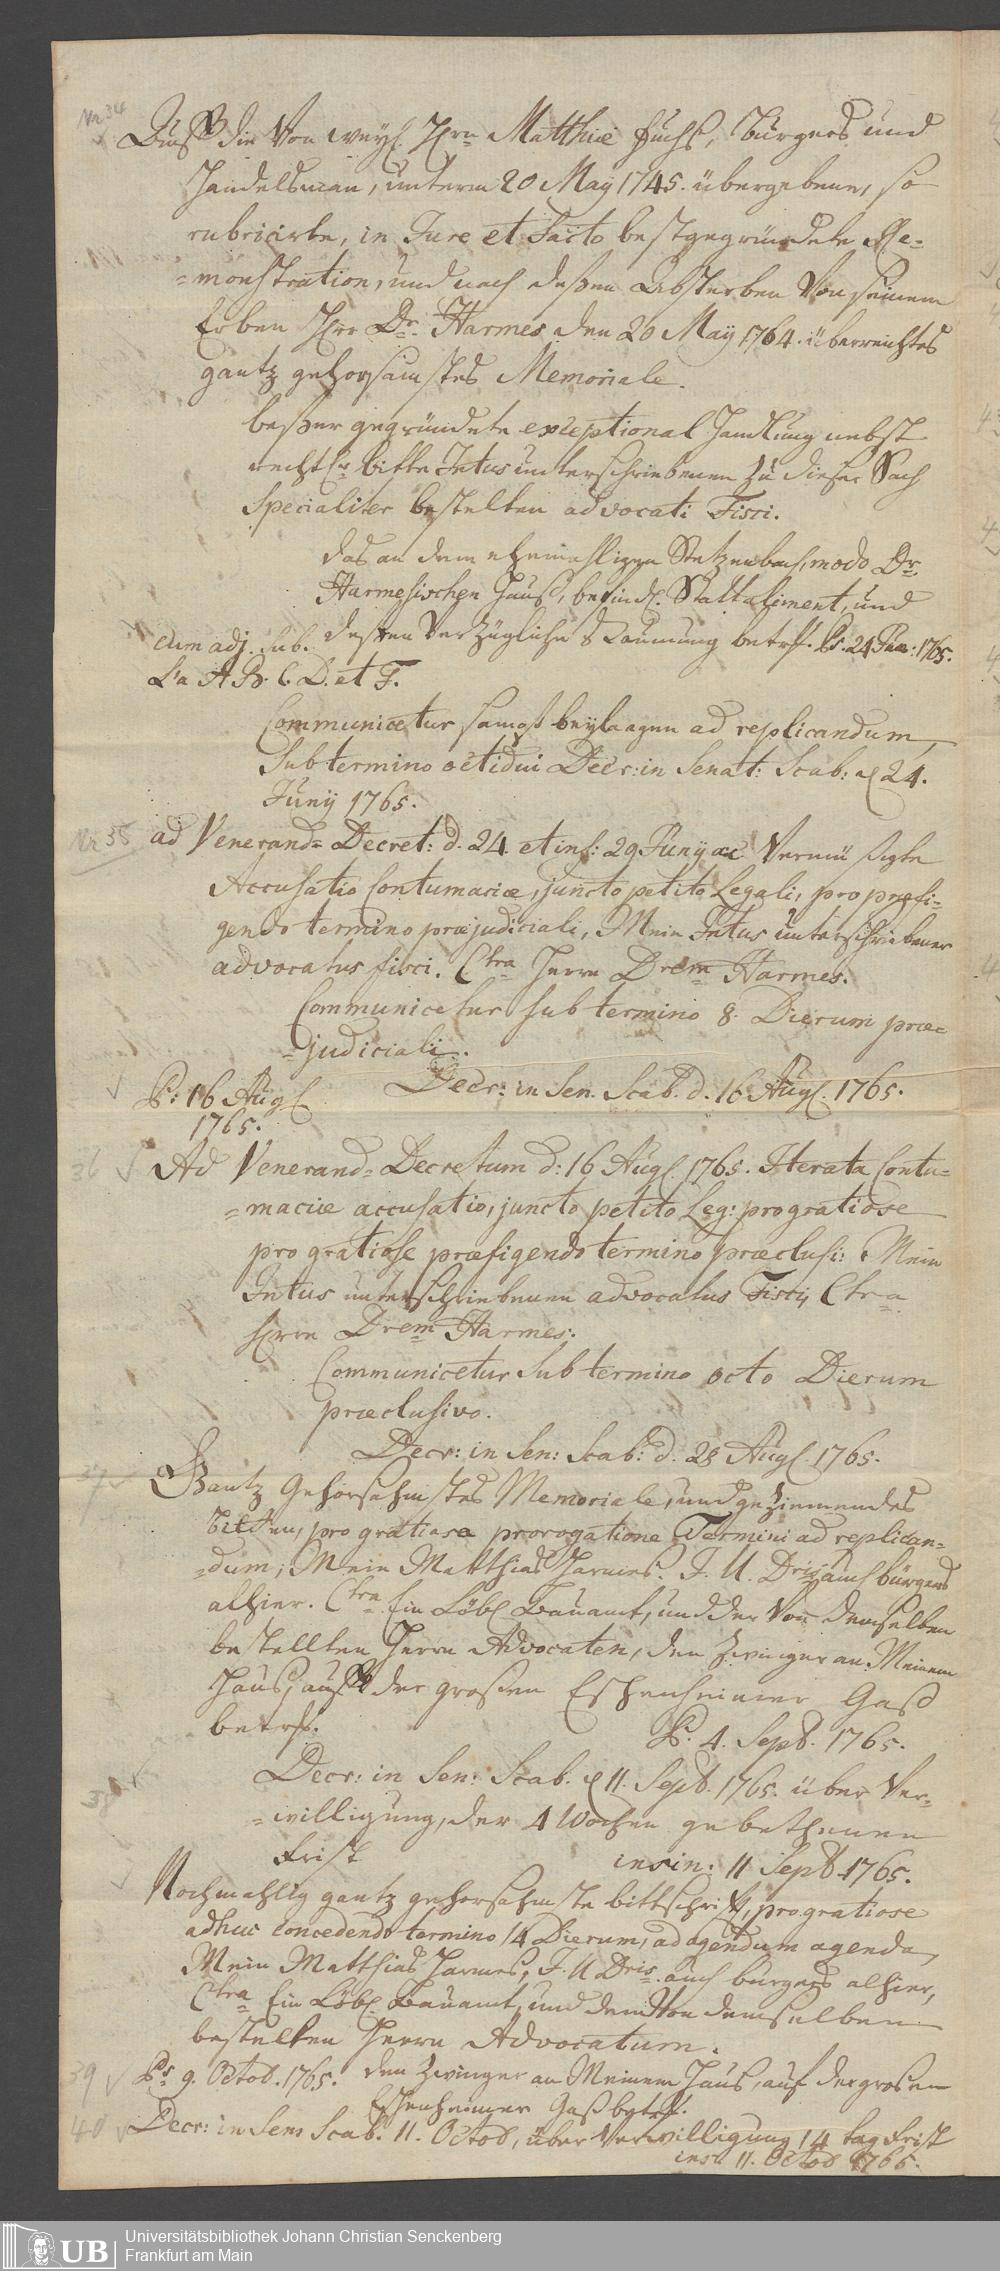 Nr 34
Auf die Von weyl. Hrn Matthiæ Fuchs, Bürgers und
Handelsman, unterm 20 Maÿ 1745. übergebene, so
rubricirte, in Jure et Facto bestgegründete Re-
=monstration, und nach deßen Absterben Von seinem
Erben Hrn Dr. Harmes den 20 Maÿ 1764. überreichtes
gantz gehorsamstes Memoriale.
beßer gegründete exceptional Handlung nebst
rechtl. bitte Intus unterschriebenen zu dieser Sach
Specialiter bestelten advocati Fisci.
das an dem ehemahligen Stetzenbach, modo Dr.
Harmesischen Hauß, befindl. Stallaliment, und
deßen Verzügliche Raumung betrf. Ps. 24 Jun: 1765.
cum adj. sub.
La A. B. C. D. et F.
Communicetur samt beylaagen ad replicandum,
Sub termino octidui Decr: in Senat: Scab: d 24.
Junÿ 1765.
Nr 35
ad Venerand= Decret: d. 24. et ins: 29 Junÿ ac Vermüßigte
Accusatio Contumaciæ, juncto petito Legali, pro præfi-
gendo termino præjudiciali, Mein Intus unterschriebener
advocatus fisci. Ctra Herrn Drem Harmes.
Communicetur sub termino 8. Dierum præ-
=judiciali.
Decr: in Sen. Scab. d. 16 Aug. 1765.
Ps: 16 Aug
1765.
36
Ad Venerand= Decretum d: 16 Aug. 1765. Iterata Contu-
=maciæ accusatio, juncto petito Leg: pro gratiose
pro gratiose præfigendo termino præclusi: Mein
Intus unterschriebenen advocatus Fisci, Ctra
Hrrn Drem Harmes.
Communicetur Sub termino octo Dierum
præclusivo.
Decr: in Sen: Scab: d. 28 Aug. 1765.
37
Gantz Gehorsahmstes Memoriale, und geziemendes
bitten, pro gratiosa prorogatione Termini ad replican-
=dum, Mein Matthias Harmes. J. U. Dris auch bürgers
alhier. Ctra Ein Löbl Bauamt, und der Von demselben
bestellten Herrn Advocaten, den Zwinger an Meinem
Hauß, auff der großen Eschenheimer Gaß
betrf.
Ps. 4. Sept. 1765.
38
Decr: in Sen: Scab. d 11. Sept. 1765. über Ver-
=willigung, der 4 Wochen gebethenen
Frist
insin. 11 Sept 1765.
Nochmahlig gantz gehorsahmste bittschrift, pro gratiose
adhuc concedendo termino 14 Dierum, ad agendum agenda,
Mein Matthias Harmes, J. U Dris. auch burgers alhier,
Ctra Ein Löbl. Bauamt, und dem Von demselben
bestelten Herrn Advocatum.
39
Ps 9. Octob. 1765. den Zwinger an Meinem Haus, auf der grosen
Eschenheimer Gaß betrf.
40
Decr: in Sen Scab. 11. Octob, über Verwilligung 14 tag Frist
insi 11. Octob 1765.
UB
Universitätsbibliothek Johann Christian Senckenberg
Frankfurt am Main